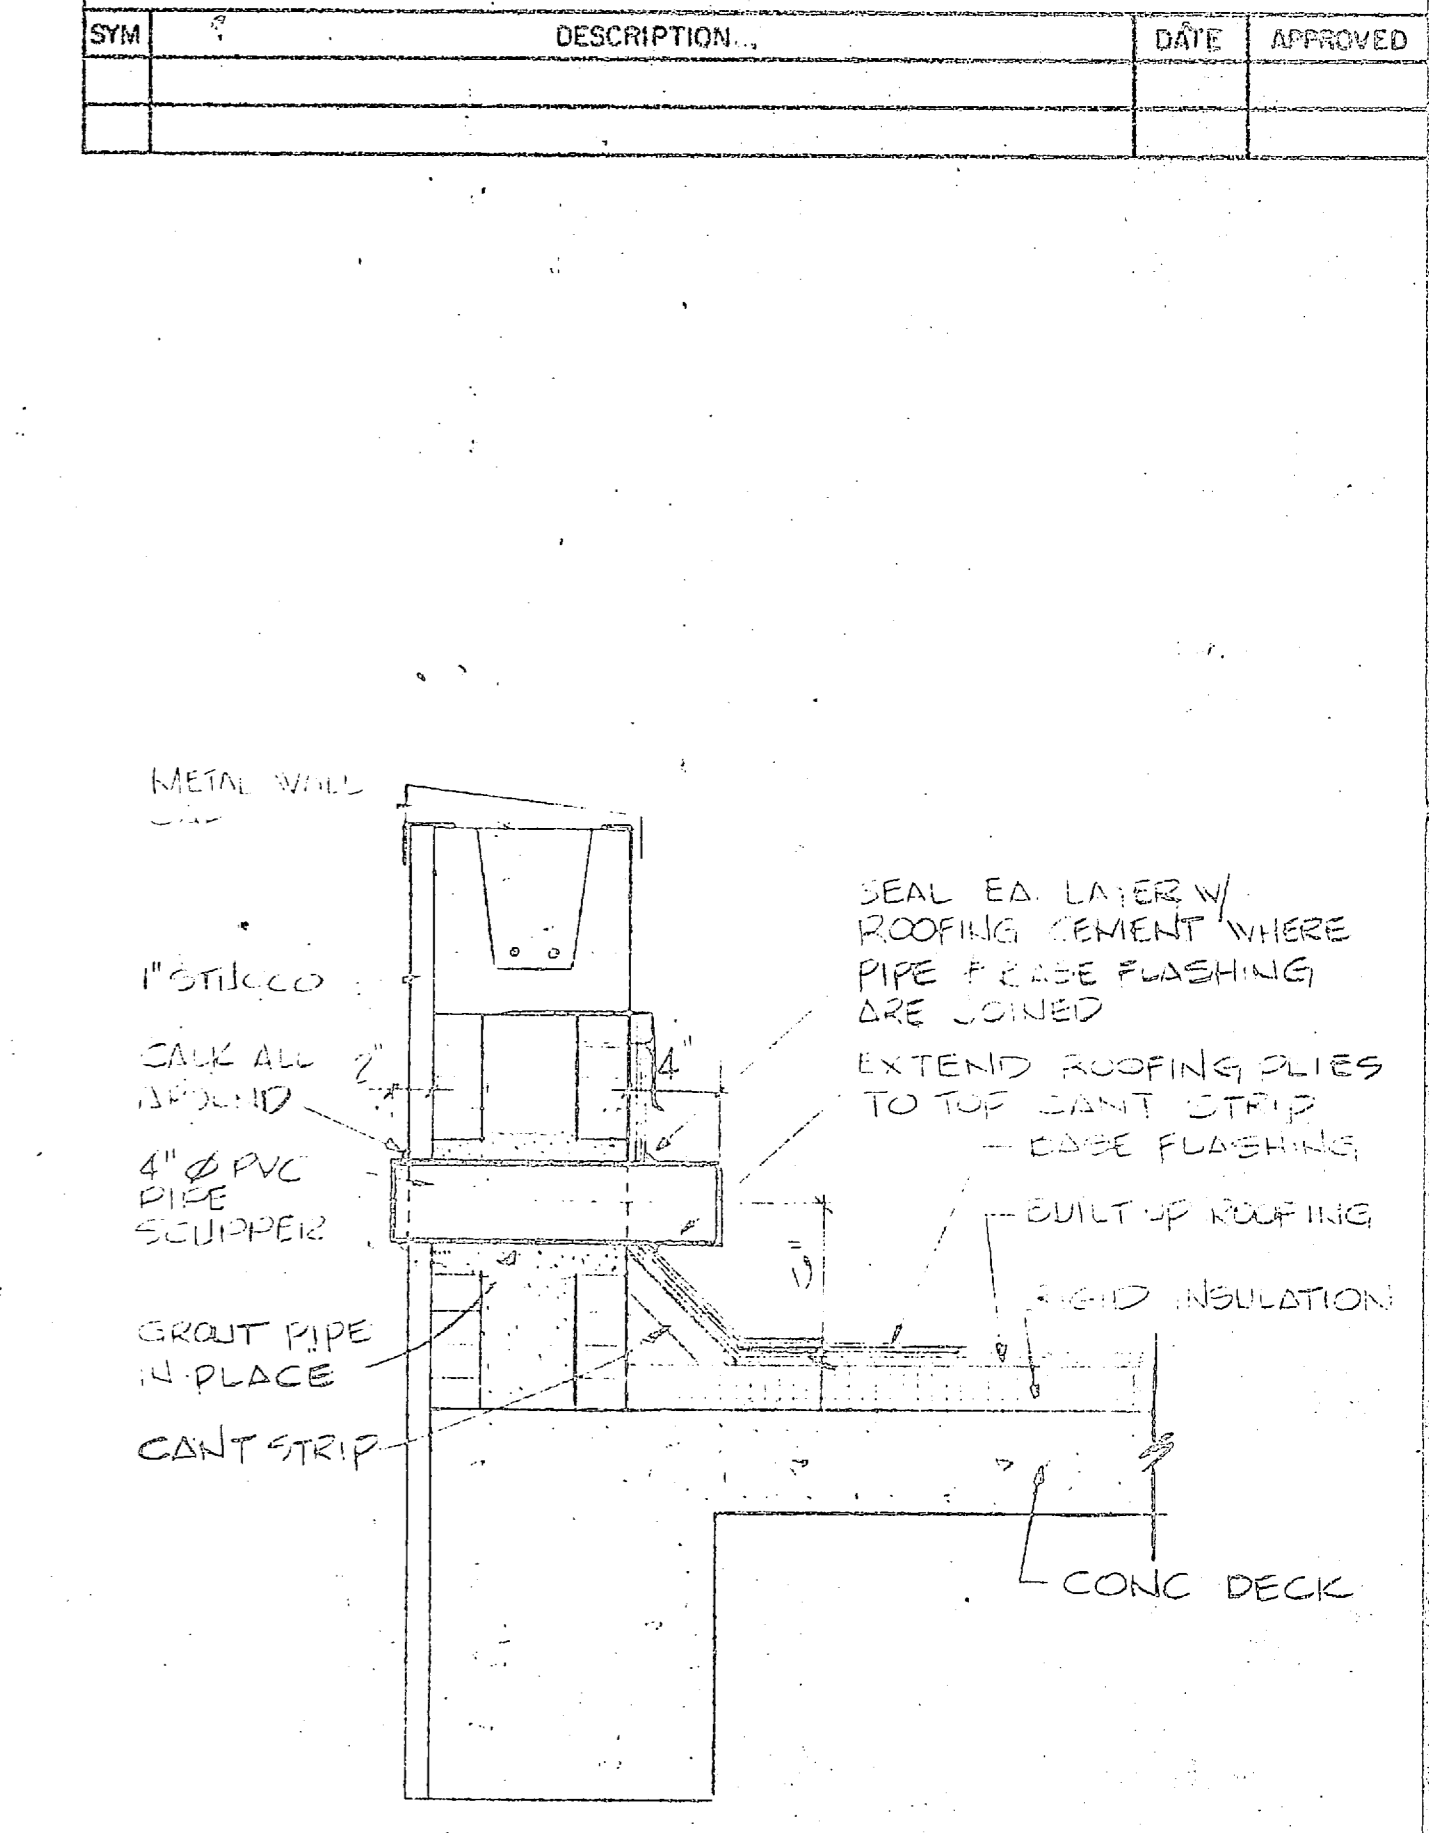 SYM DESCRIPTION DATE APPROVED
METAL WALL
CAP
1" STUCCO
CALK ALL
AROUND
2"
4"
4" Ø PVC
PIPE
SCUPPER
GROUT PIPE
IN PLACE
CANT STRIP
SEAL EA. LAYER W/
ROOFING CEMENT WHERE
PIPE & BASE FLASHING
ARE JOINED
EXTEND ROOFING PLIES
TO TOP CANT STRIP
BASE FLASHING
BUILT UP ROOFING
RIGID INSULATION
CONC DECK